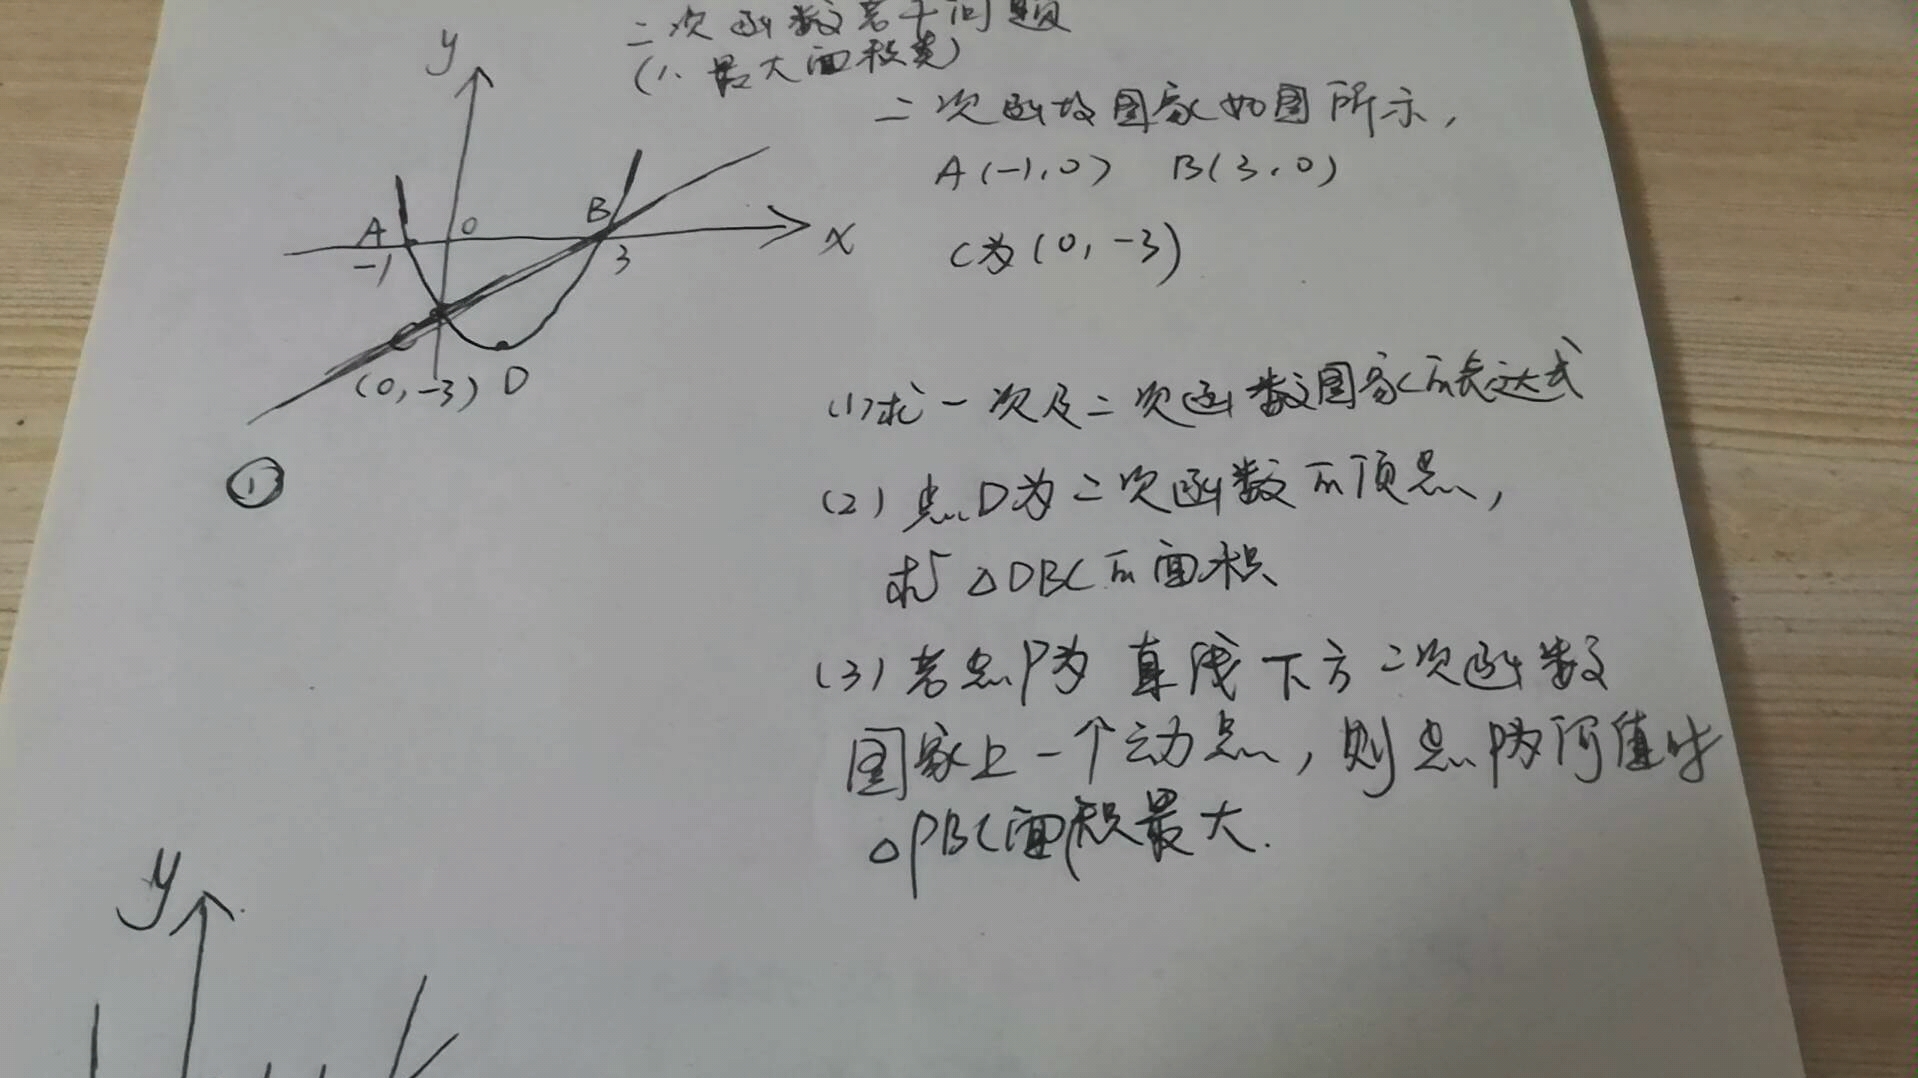 二次函数若干问题
(1、最大面积类)
二次函数图象如图所示,
A(-1,0) B(3,0)
C为(0,-3)
y
A
0
B
x
-1
3
C
(0,-3) D
①
(1)求一次及二次函数图象的表达式
(2)点D为二次函数的顶点,
求△DBC的面积
(3)若点P为直线下方二次函数
图象上一个动点,则点P为何值时
△PBC面积最大.
y